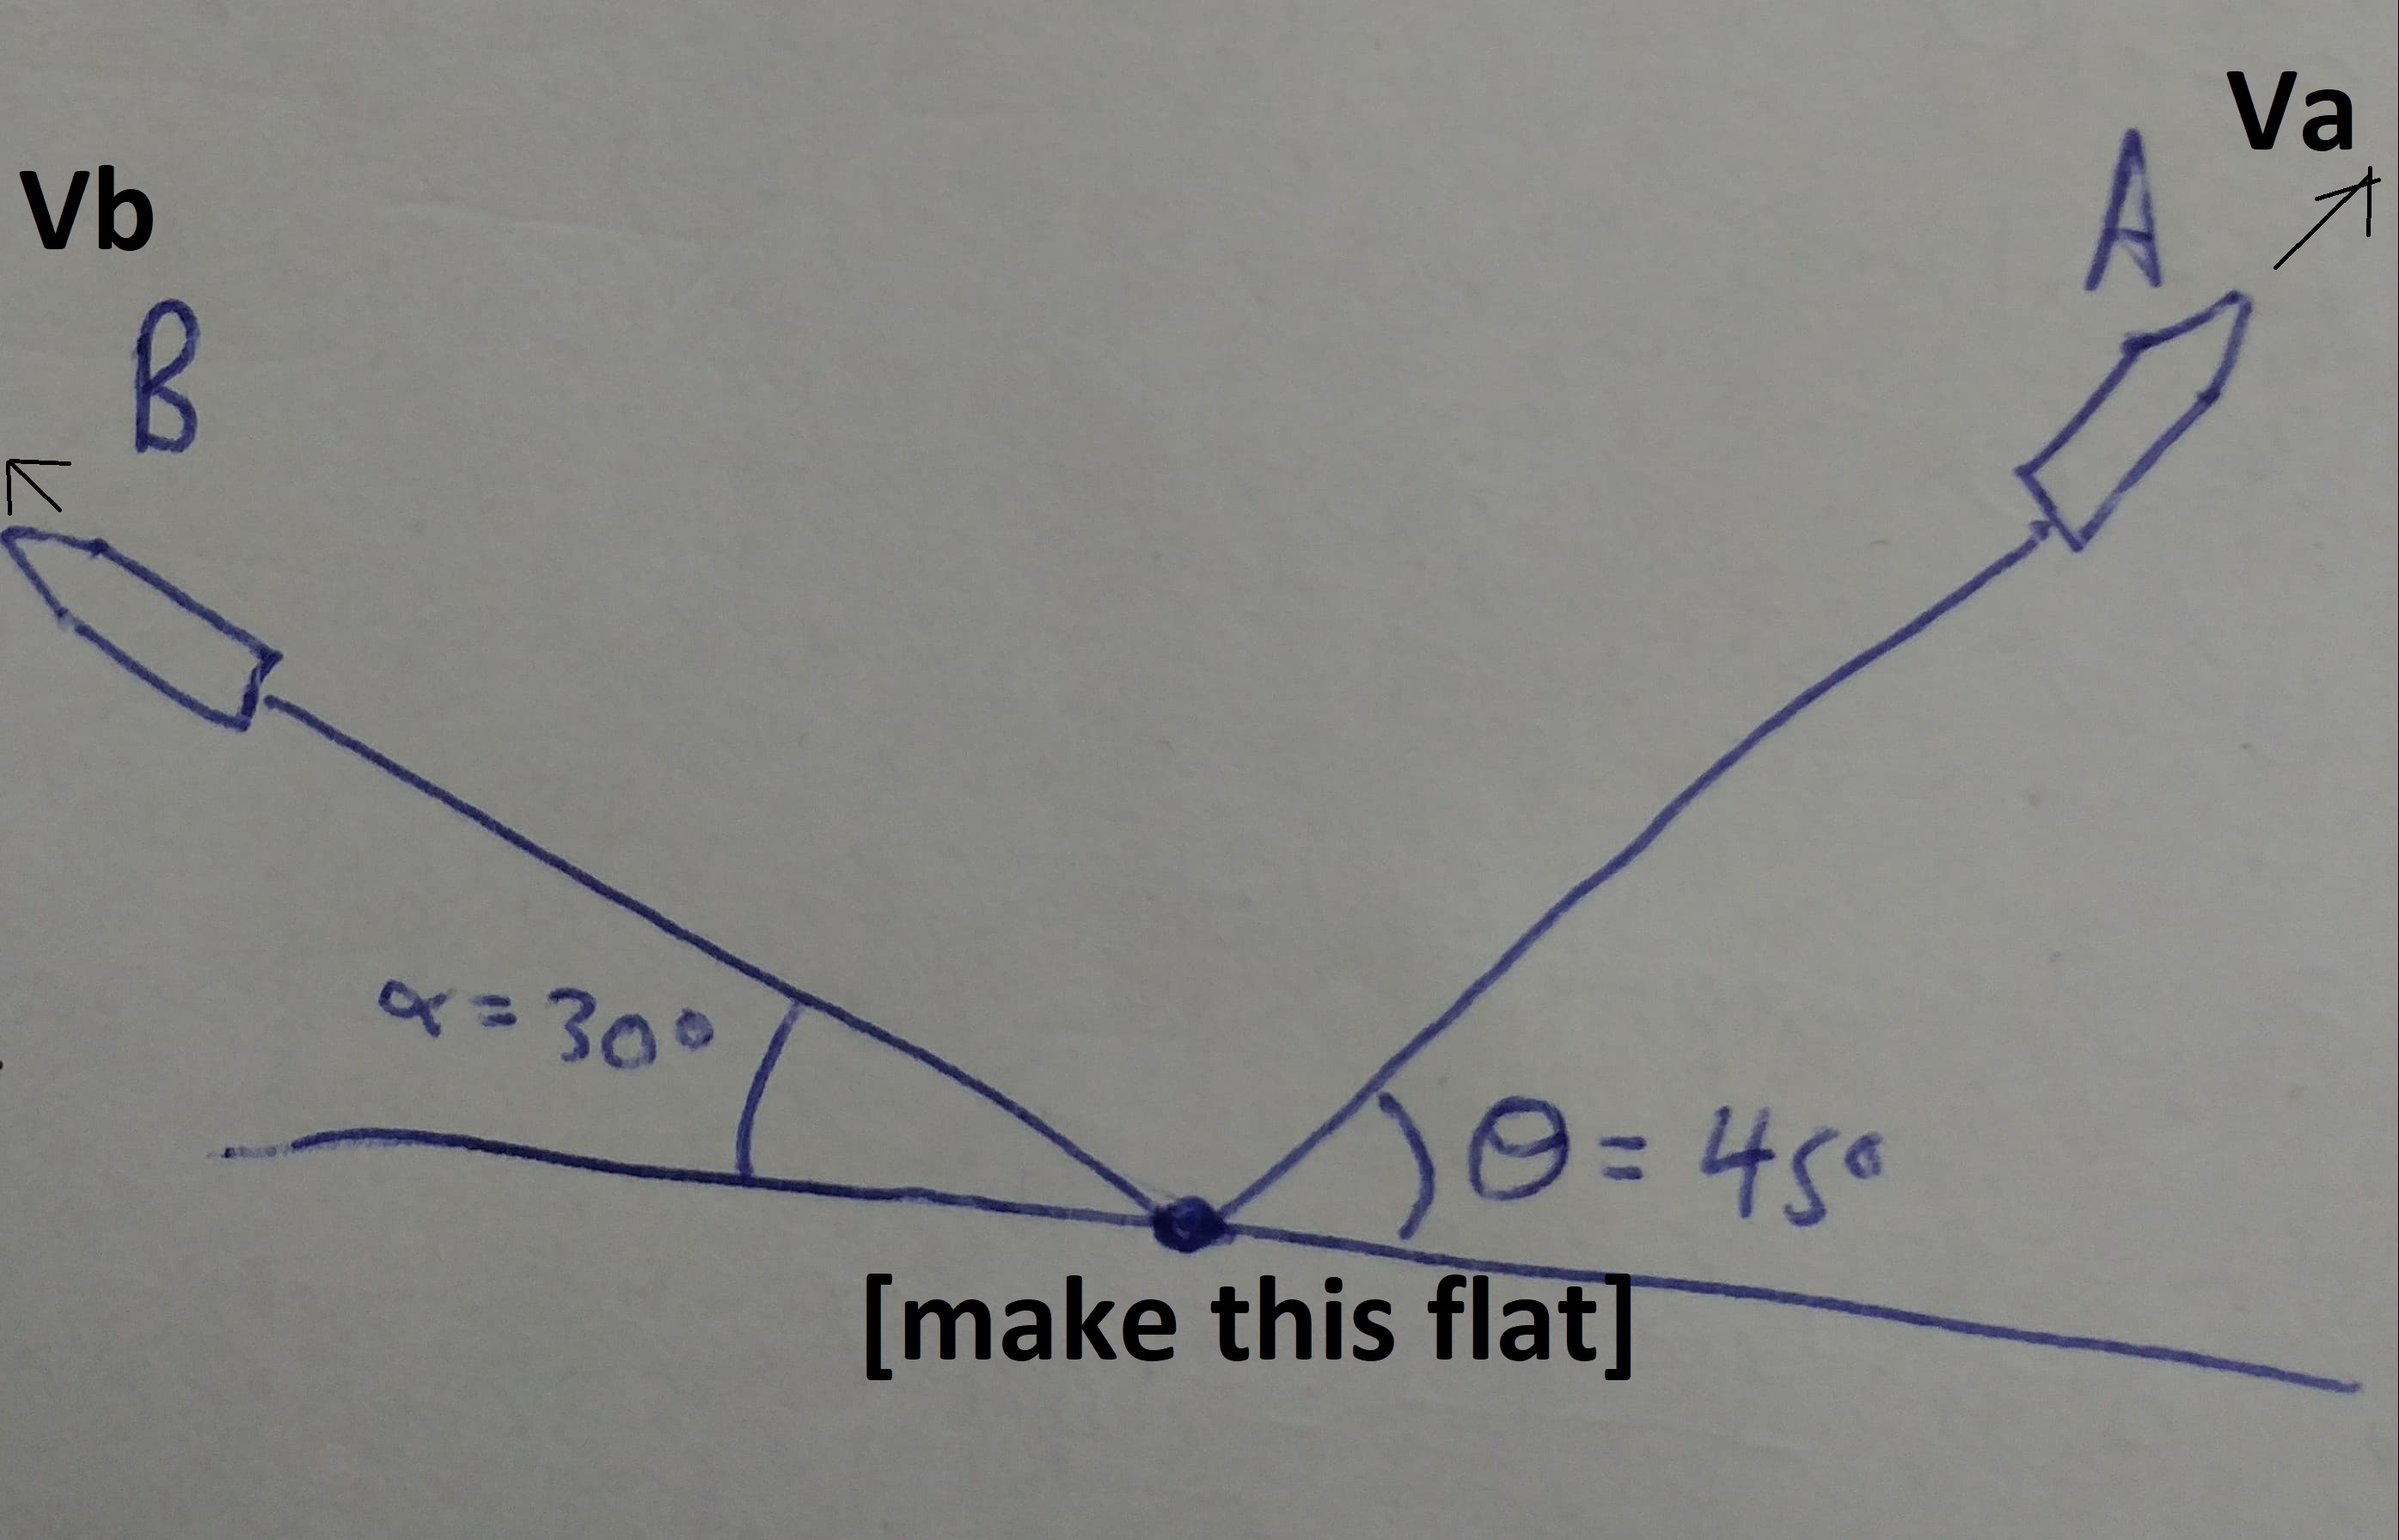 Va
A
Vb
B
α = 30°
θ = 45°
[make this flat]